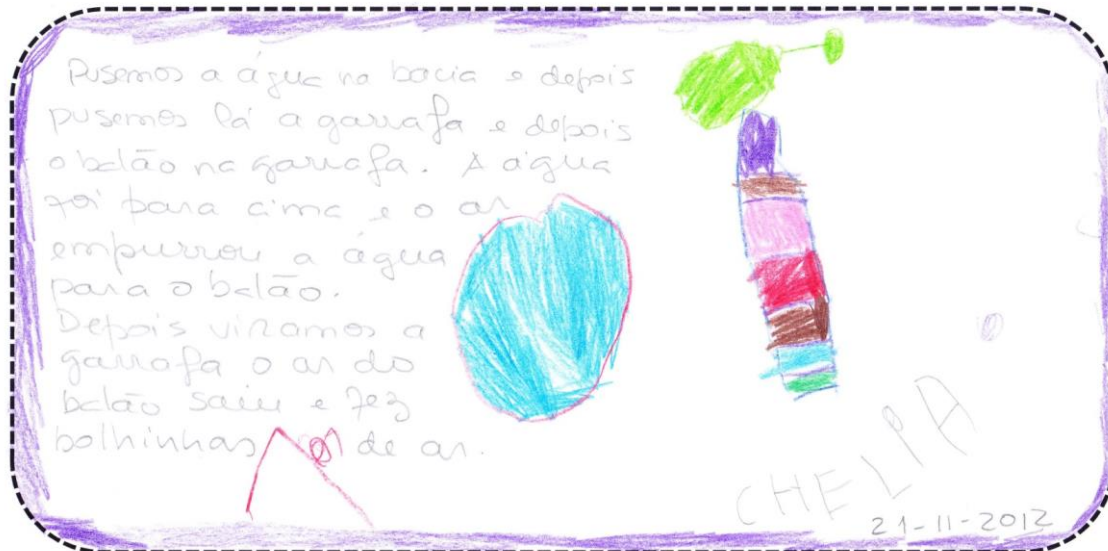 Pusemos a água na bacia e depois
pusemos lá a garrafa e depois
o balão na garrafa. A água
foi para cima e o ar
empurrou a água
para o balão.
Depois viramos a
garrafa o ar do
balão saiu e fez
bolhinhas de ar.
CHELPA
21-11-2012